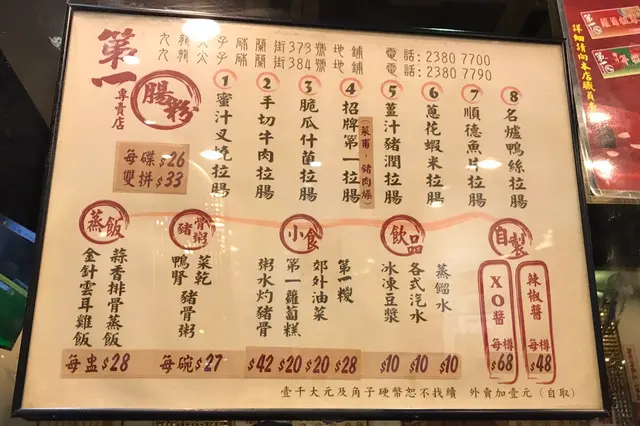 第一
腸粉
專賣店
九龍 太子 砵蘭街 373 號地舖 電話:2380 7700
九龍 太子 砵蘭街 384 號地舖 電話:2380 7790
① 蜜汁叉燒拉腸
② 手切牛肉拉腸
③ 脆瓜什菌拉腸
④ 招牌第一拉腸
(菜甫,豬肉燥)
⑤ 薑汁豬潤拉腸
⑥ 蔥花蝦米拉腸
⑦ 順德魚片拉腸
⑧ 名爐鴨絲拉腸
每碟$26
雙拼$33
蒸飯
蒜香排骨蒸飯
金針雲耳雞飯
每盅$28
豬骨粥
菜乾
鴨腎 豬骨粥
每碗$27
小食
粥水灼豬骨 $42
第一蘿蔔糕 $20
郊外油菜 $20
第一糉 $28
飲品
冰凍豆漿 $10
各式汽水 $10
蒸餾水 $10
自製
XO醬 每樽 $68
辣椒醬 每樽 $48
壹千大元及角子硬幣恕不找續 外賣加壹元(自取)
詳細請向本店職員